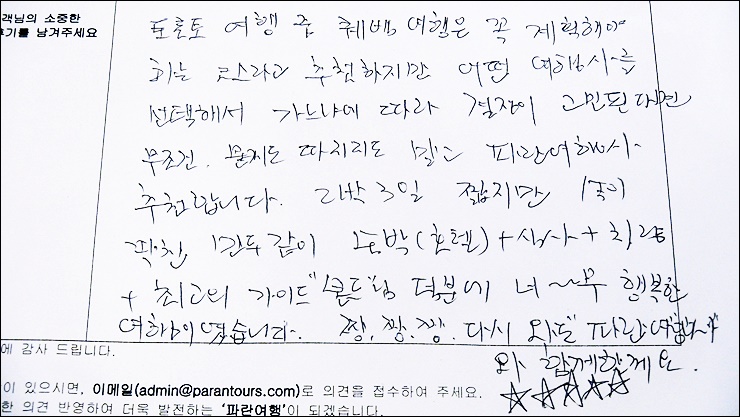 객님의 소중한
후기를 남겨주세요
토론토 여행 중 퀘벡 여행은 꼭 계획해야
하는 코스라고 추천하지만 어떤 여행사를
선택해서 가느냐에 따라 결정이 고민된다면
무조건. 묻지도 따지지도 말고 파란여행사
추천합니다. 2박 3일 짧지만 속이
꽉찬 만두같이 숙박(호텔)+식사+
+ 최고의 가이드 "님 덕분에 너~무 행복한
여행이였습니다. 짱, 짱, 짱. 다시 와도 "파란여행사"
와 함께할게요.
☆☆☆☆☆
에 감사 드립니다.
이 있으시면, 이메일(admin@parantours.com)로 의견을 접수하여 주세요.
한 의견 반영하여 더욱 발전하는 '파란여행'이 되겠습니다.